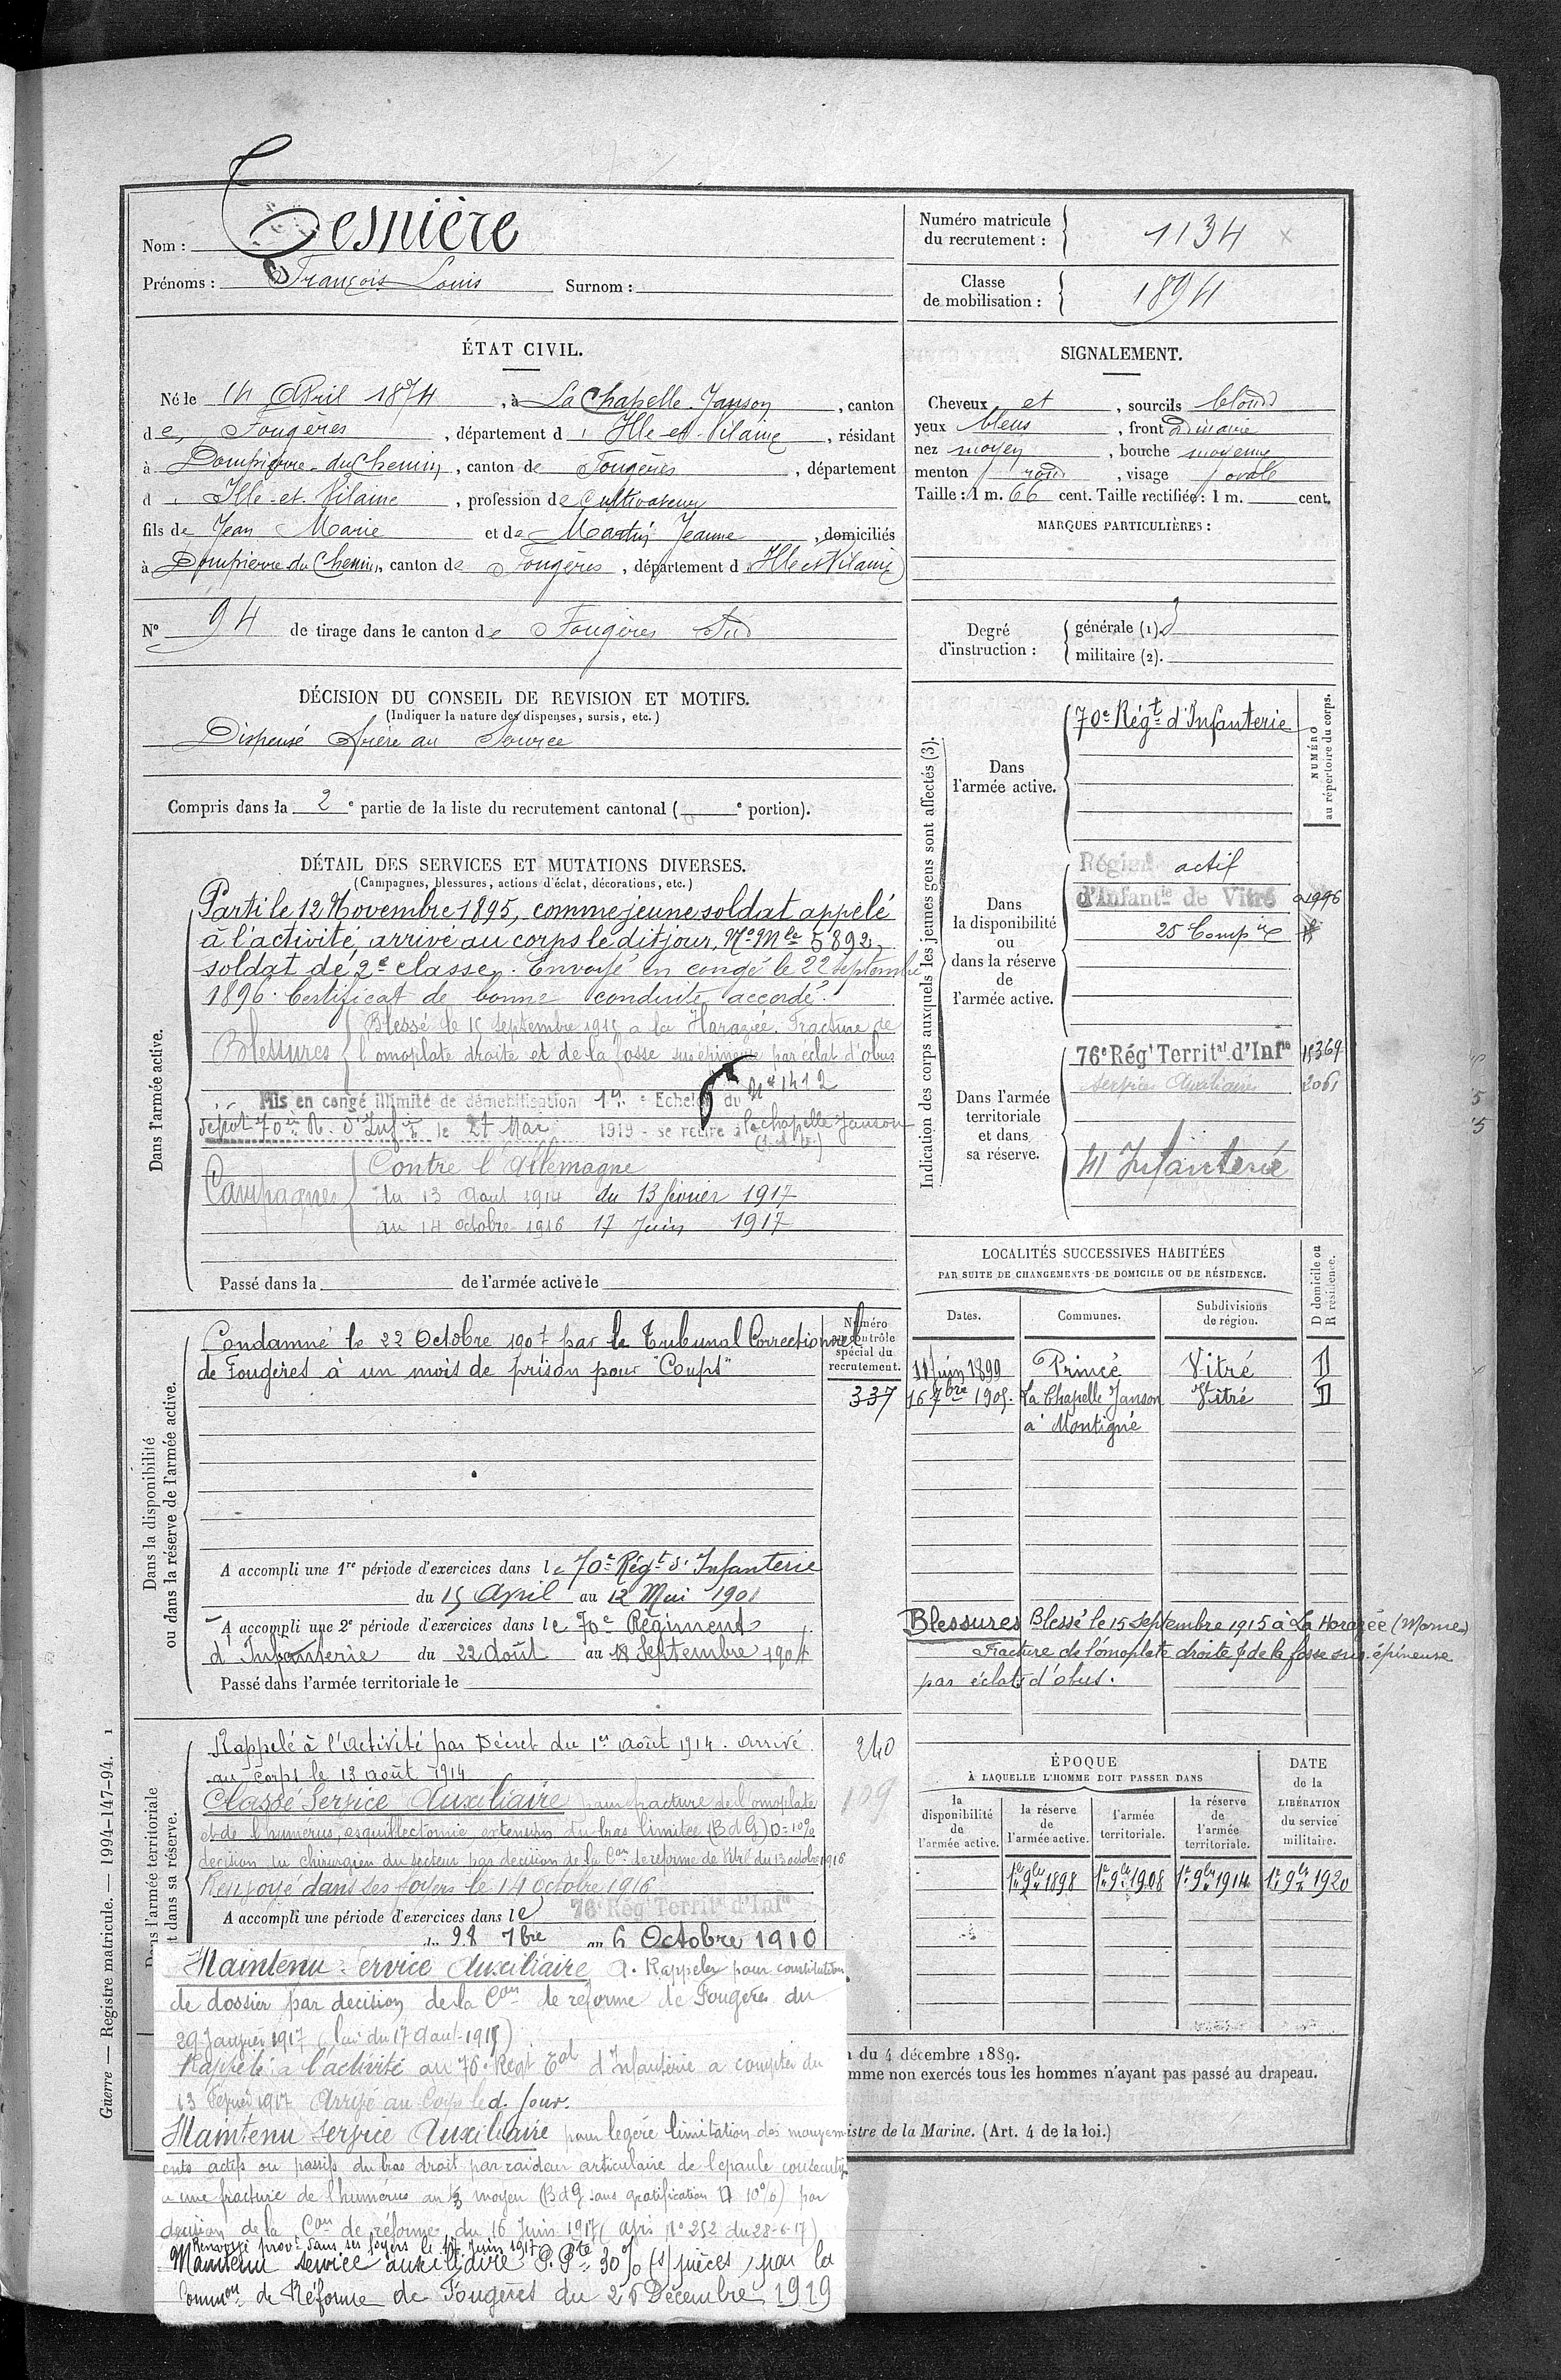 Nom : Tesnière
Prénoms : François Louis Surnom :
Numéro matricule du recrutement : 1134
Classe de mobilisation : 1894
ÉTAT CIVIL.
Né le 14 Avril 1874, à La Chapelle Janson, canton
de Fougères, département d'Ille-et-Vilaine, résidant
à Dompierre-du-Chemin, canton de Fougères, département
d'Ille-et-Vilaine, profession de Cultivateur
fils de Jean Marie et de Martin Jeanne, domiciliés
à Dompierre du Chemin, canton de Fougères, département d'Ille et Vilaine
N° 94 de tirage dans le canton de Fougères Sud
SIGNALEMENT.
Cheveux et, sourcils blonds
yeux bleus, front ordinaire
nez moyen, bouche moyenne
menton rond, visage ovale
Taille : 1 m. 66 cent. Taille rectifiée : 1 m. cent.
MARQUES PARTICULIÈRES :
Degré d'instruction : générale (1). 3
militaire (2).
DÉCISION DU CONSEIL DE REVISION ET MOTIFS.
(Indiquer la nature des dispenses, sursis, etc.)
Dispensé frère au Service
Compris dans la 2e partie de la liste du recrutement cantonal ( e portion).
DÉTAIL DES SERVICES ET MUTATIONS DIVERSES.
(Campagnes, blessures, actions d'éclat, décorations, etc.)
Dans l'armée active.
Parti le 12 Novembre 1895, comme jeune soldat appelé
à l'activité, arrivé au corps le dit jour, No Mle 5892,
soldat de 2e classe. Envoyé en congé le 22 septembre
1896. Certificat de bonne conduite accordé.
Blessures { Blessé le 15 septembre 1915 a la Harazée. Fracture de
l'omoplate droite et de la fosse sus epineuse par éclat d'obus
No 1412
Mis en congé illimité de démobilisation 1er Echelon du
dépôt 70e R. d'Infie le 27 Mai 1919 - se retire à la chapelle Janson
(I. et V.)
Campagnes { Contre l'Allemagne
du 13 Aout 1914 du 13 février 1917
au 14 octobre 1916 17 Juin 1917
Passé dans la de l'armée active le
Indication des corps auxquels les jeunes gens sont affectés (3).
NUMÉRO au répertoire du corps.
Dans l'armée active.
70e Régt d'Infanterie
Dans la disponibilité ou dans la réserve de l'armée active.
Régimt actif
d'Infantie de Vitré
25 Compie
Dans l'armée territoriale et dans sa réserve.
76e Régt Territal d'Infie 15369
Services Auxiliaires 2061
41 Infanterie
LOCALITÉS SUCCESSIVES HABITÉES
PAR SUITE DE CHANGEMENTS DE DOMICILE OU DE RÉSIDENCE.
Dates. Communes. Subdivisions de région. D domicile ou R résidence.
11 juin 1899 Princé Vitré D
16 7bre 1905. La Chapelle Janson Vitré D
a Montigné
Dans la disponibilité ou dans la réserve de l'armée active.
Numéro au contrôle spécial du recrutement.
337
Condamné le 22 Octobre 1907 par le Tribunal Correctionnel
de Fougères à un mois de prison pour "Coups"
A accompli une 1re période d'exercices dans le 70e Régt d'Infanterie
du 15 April au 12 Mai 1901
A accompli une 2e période d'exercices dans le 70e Régiment
d'Infanterie du 22 Août au 18 Septembre 1904
Passé dans l'armée territoriale le
Blessures Blessé le 15 Septembre 1915 à La Harazée (Marne)
Fracture de l'omoplate droite & de la fosse sus. épineuse
par éclats d'obus.
Rappelé à l'activité par Décret du 1er août 1914. arrivé
au corps le 13 août 1914
240
109
Classé Service Auxiliaire pour fracture de l'omoplate
et de l'humerus, esquillectomie, extension du bras limitée (B d G) D=10%
decision du chirurgien du secteur par decision de la Con de reforme de Vitré du 13 octobre 1916
Renvoyé dans ses foyers le 14 Octobre 1916
A accompli une période d'exercices dans le 76e Rég Territal d'Infie
28 7bre au 6 Octobre 1910
ÉPOQUE
À LAQUELLE L'HOMME DOIT PASSER DANS
la disponibilité de l'armée active. la réserve de l'armée active. l'armée territoriale. la réserve de l'armée territoriale.
DATE de la LIBÉRATION du service militaire.
1er 9bre 1898 1er 9bre 1908 1er 9bre 1914 1er 9bre 1920
Maintenu Service Auxiliaire A. Rappeler pour constitution
de dossier par decision de la Con de réforme de Fougères du
29 Janvier 1917 (Loi du 17 Aout 1915)
Rappelé à l'activité au 76e Regt Tal d'Infanterie a compter du
13 Fevrier 1917 Arrivé au Corps le d. Jour.
Maintenu Service Auxiliaire pour legère limitation des mouvem
ents actifs ou passifs du bras droit par raideur articulaire de l'epaule consecutive
a une fracture de l'humérus au 1/3 moyen (B d G sans gratification 10%) par
decision de la Con de réforme du 16 Juin 1917 (Avis No 252 du 28-6-17)
Renvoyé provt dans ses foyers le 17 Juin 1917
Maintenu service auxiliaire P. Pte 30% (s/ pièces) par la
Common de Réforme de Fougères du 26 Décembre 1919
n du 4 décembre 1889.
mme non exercés tous les hommes n'ayant pas passé au drapeau.
istre de la Marine. (Art. 4 de la loi.)
Guerre — Registre matricule. — 1994-147-94. 1